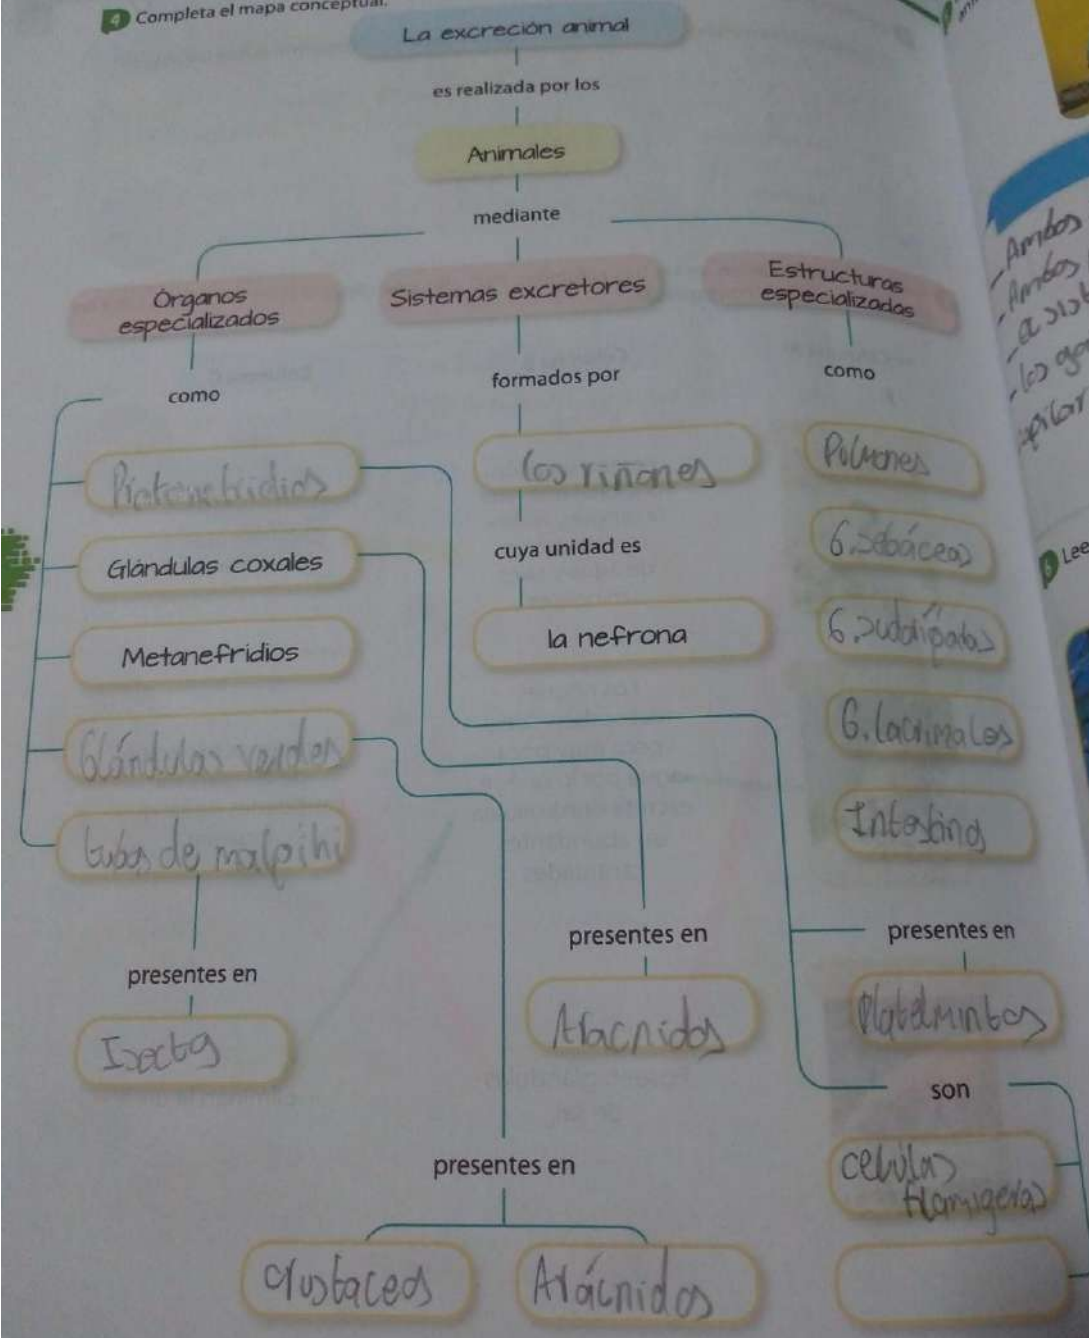 4 Completa el mapa conceptual.
La excreción animal
es realizada por los
Animales
mediante
Órganos
especializados
Sistemas excretores
Estructuras
especializadas
como
formados por
como
Glándulas coxales
Metanefridios
Glándulas verdes
tubos de malpihi
los riñones
cuya unidad es
la nefrona
Pulmones
G. Sebáceas
G. sudoríparas
G. lacrimales
Intestino
presentes en
Isectos
presentes en
Arácnidos
presentes en
Platelmintos
son
celulas
flamigeras
presentes en
crustaceos
Arácnidos
Ambos
Ambos
los
Lee